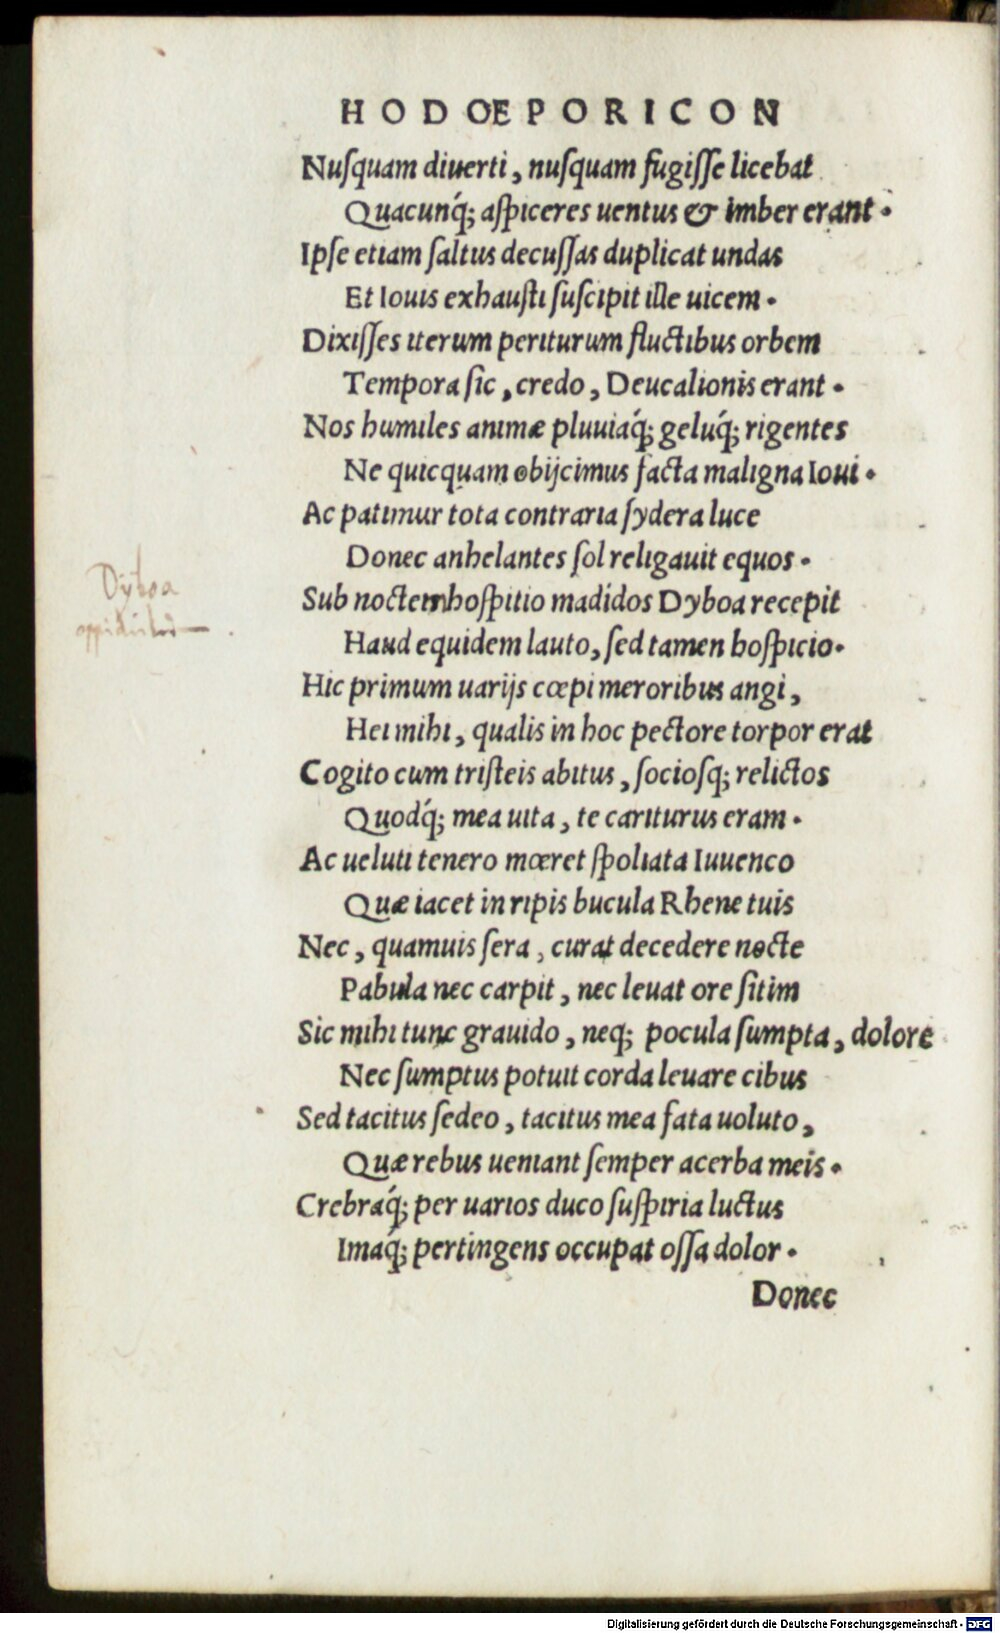 HODOEPORICON
Nuſquam diuerti, nuſquam fugiſſe licebat
Quacunq́; aſpiceres uentus & imber erant.
Ipſe etiam ſaltus decuſſas duplicat undas
Et Iouis exhauſti ſuſcipit ille uicem.
Dixiſſes iterum periturum fluctibus orbem
Tempora ſic, credo, Deucalionis erant.
Nos humiles animæ pluuiaq́; geluq́; rigentes
Ne quicquam obijcimus facta maligna Ioui.
Ac patimur tota contraria ſydera luce
Donec anhelantes ſol religauit equos.
Sub noctem hoſpitio madidos Dyboa recepit
Haud equidem lauto, ſed tamen hoſpicio.
Hic primum uarijs cœpi meroribus angi,
Hei mihi, qualis in hoc pectore torpor erat
Cogito cum triſteis abitus, ſocioſq; relictos
Quodq́; mea uita, te cariturus eram.
Ac ueluti tenero mœret ſpoliata Iuuenco
Quæ iacet in ripis bucula Rhene tuis
Nec, quamuis ſera, curat decedere nocte
Pabula nec carpit, nec leuat ore ſitim
Sic mihi tunc grauido, neq; pocula ſumpta, dolore
Nec ſumptus potuit corda leuare cibus
Sed tacitus ſedeo, tacitus mea fata uoluto,
Quæ rebus ueniant ſemper acerba meis.
Crebraq́; per uarios duco ſuſpiria luctus
Imaq́; pertingens occupat oſſa dolor.
Donec
Dyboa
Digitalisierung gefördert durch die Deutsche Forschungsgemeinschaft - DFG